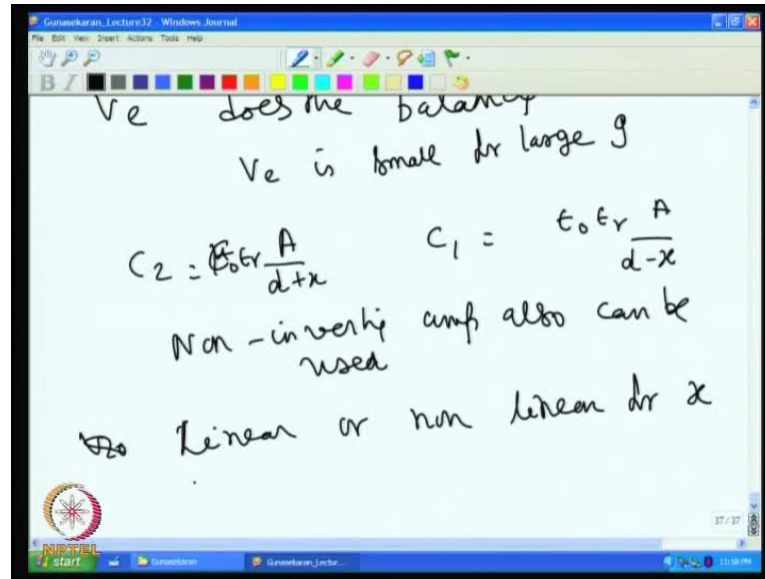 Gunasekaran_Lecture32 - Windows Journal
File Edit View Insert Actions Tools Help
B I
Ve does the balancing
Ve is small for large g
C2 = ε0 εr A/(d+x) C1 = ε0 εr A/(d-x)
Non-inverting amp also can be
used
Linear or non linear for x
37 / 37
NPTEL
start Gunasekaran Gunasekaran_Lectur... 11:58 PM